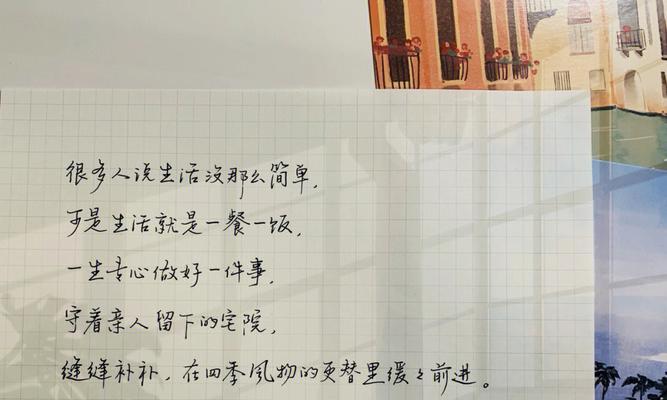 很多人说生活没那么简单，
可是生活就是一餐一饭，
一生专心做好一件事，
守着亲人留下的宅院，
缝缝补补，在四季风物的更替里缓々前进。